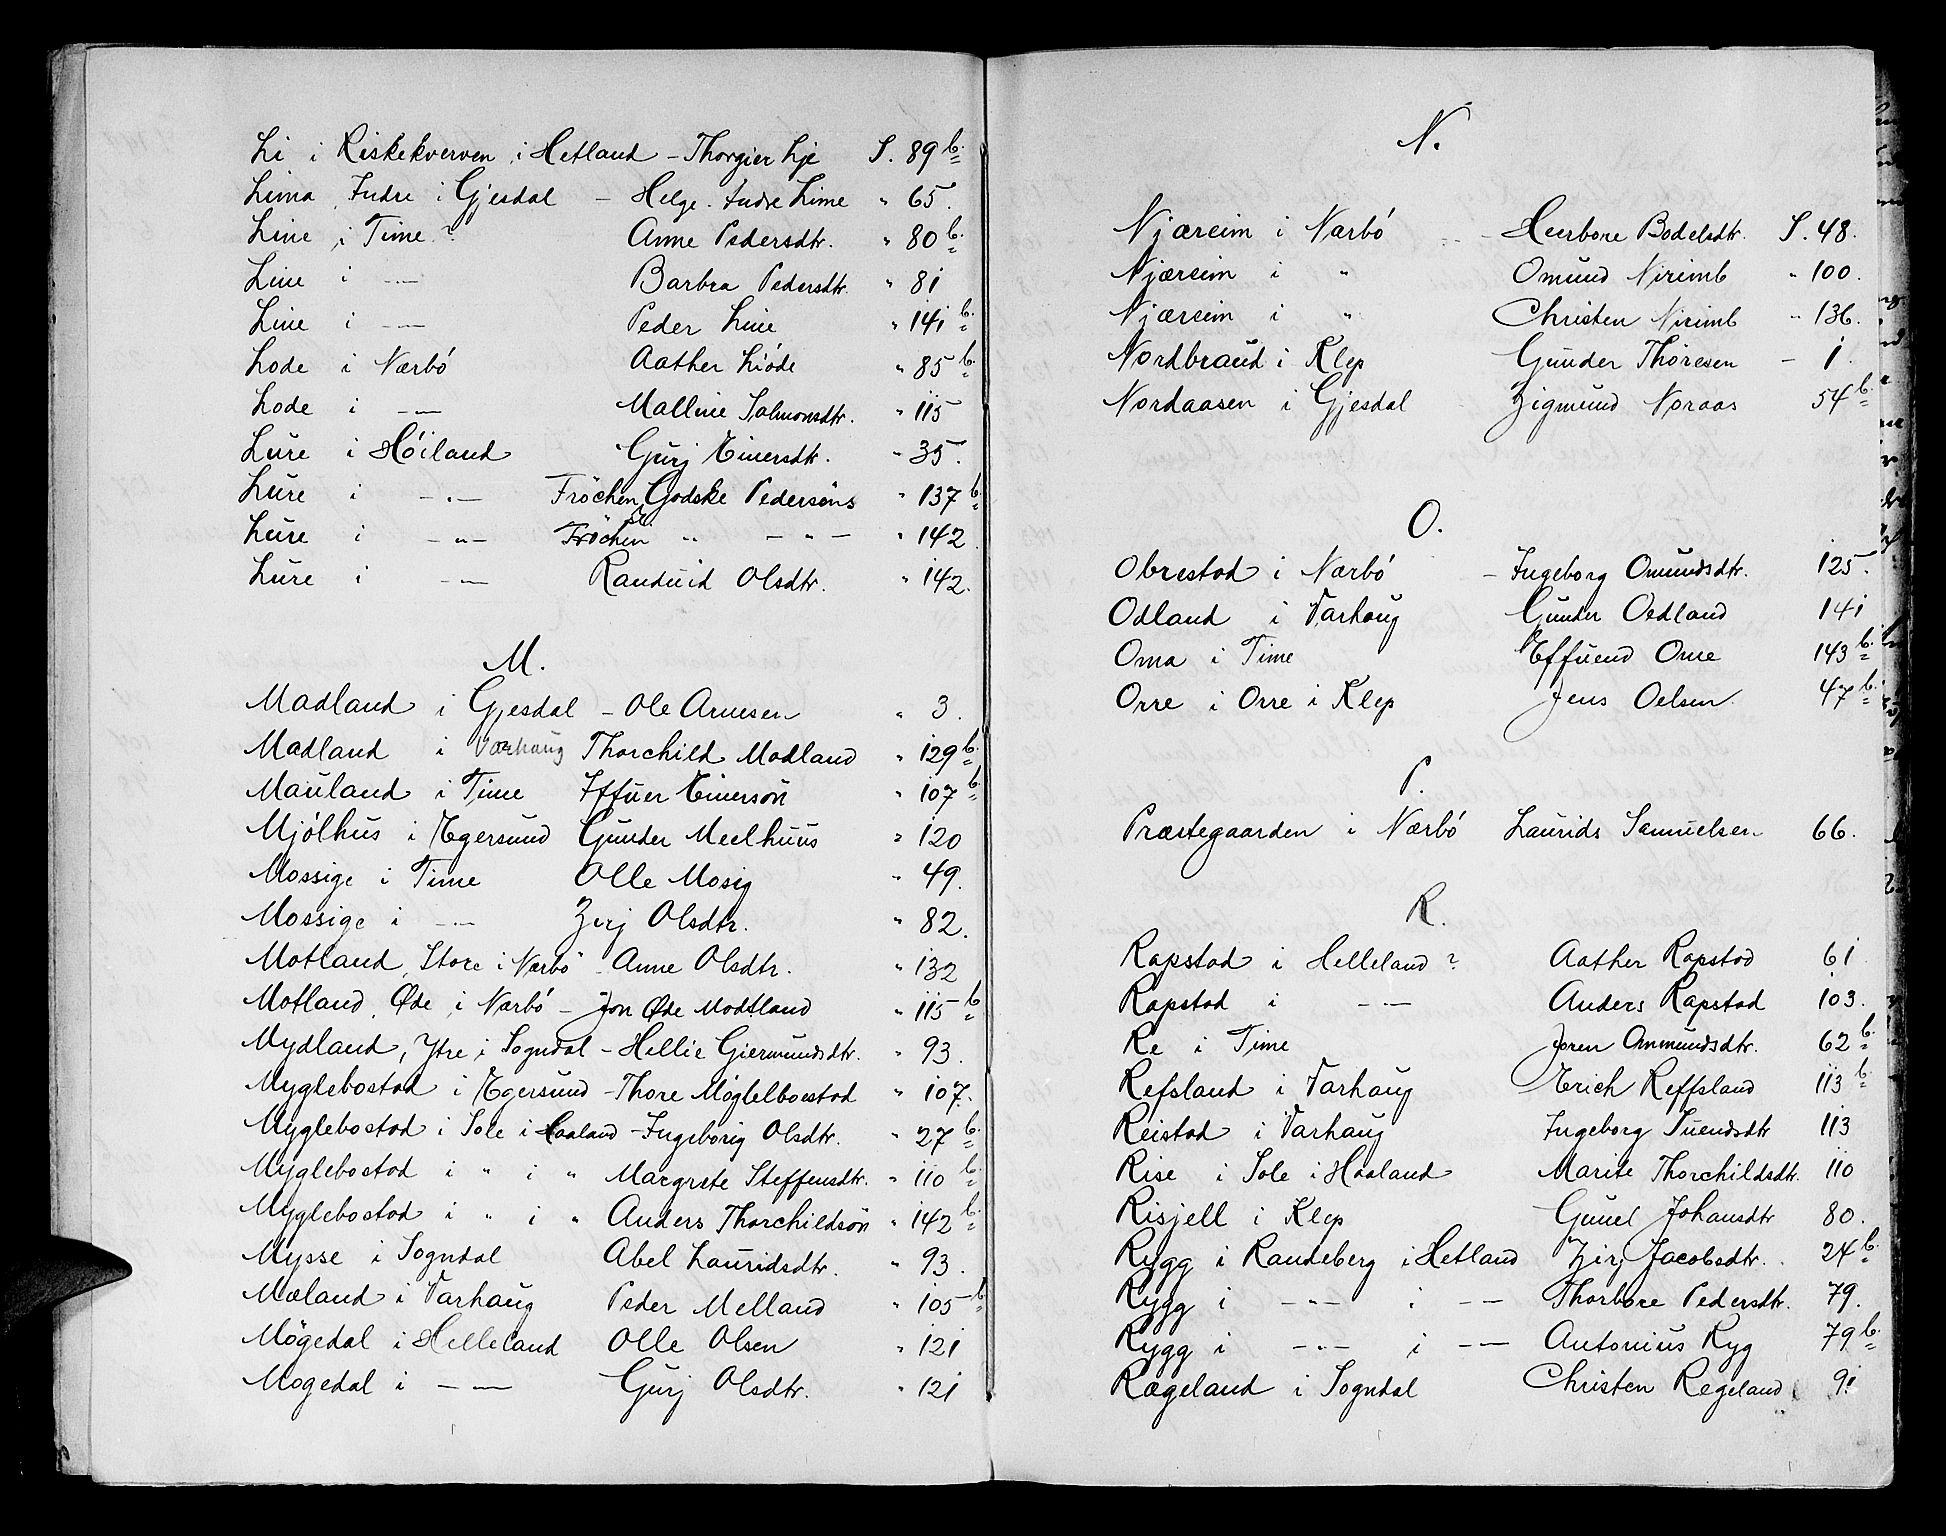 Li i Riskekverven i Hetland - Thorgier Lje S. 89 b.
Lima, Indre i Gjesdal - Helge Indre Lime " 65.
Line i Time? Anne Pedersdtr. " 80 b.
Line i -"- Barbra Pedersdtr. " 81
Line i -"- Peder Line " 141 b.
Lode i Nærbö Aather Liöde " 85 b.
Lode i -"- Malline Salmonsdtr. " 115
Lure i Höiland Gurj Einersdtr. " 35.
Lure i -"- Fröchen Godske Pedersöns " 137 b.
Lure i -"- Fröchen " -"- " 142.
Lure i -"- Randuid Olsdtr. " 142.
M.
Madland i Gjesdal - Ole Arnesen " 3.
Madland i Varhaug Thorchild Modland " 129 b.
Mauland i Time Iffuer Einersön " 107 b.
Mjölhus i Egersund Gunder Meelhuus " 120
Mossige i Time Olle Mosig " 49.
Mossige i -"- Zirj Olsdtr. " 82.
Motland, Store i Nærbö - Anne Olsdtr. " 132
Motland, Øde, i Nærbö - Jon Øde Modtland " 115 b
Mydland, Ytre, i Sogndal - Hellie Giermundsdtr. " 93.
Myglebostad i Egersund - Thore Möglelboestad " 107.
Myglebostad i Sole i Haaland - Ingeborig Olsdtr. " 27 b.
Myglebostad i " i " Margrete Steffensdtr. " 110 b
Myglebostad i " i " Anders Thorchildsön " 142 b.
Mysse i Sogndal Abel Lauridsdtr. " 93.
Mæland i Varhaug Peder Melland " 105 b
Mögedal i Helleland Olle Olsen " 121
Mögedal i -"- Gurj Olsdtr. " 121
N.
Njæreim i Nærbö - Heerbore Bodelsdtr. S. 48.
Njæreim i " Omund Nirimb " 100.
Njæreim i " Christen Nirimb " 136.
Nordbraud i Klep Gunder Thöresen - 1.
Nordaasen i Gjesdal Zigmund Noraas 54 b.
O.
Obrestad i Nærbö - Ingeborg Omundsdtr. 125.
Odland i Varhaug Gunder Oedland 141
Oma i Time Effuend Ome 143 b.
Orre i Orre i Klep Jens Oelsen 47 b.
P.
Præstegaarden i Nærbö Laurids Samuelsen 66.
R.
Rapstad i Helleland? Aather Rapstad 61
Rapstad i -"- Anders Rapstad 103.
Re i Time Joren Ommundsdtr. 62 b.
Refsland i Varhaug Erich Reffsland 113 b.
Reistad i Varhaug Ingeborg Suendsdtr 113
Rise i Sole i Haaland Marite Thorchildsdtr. 110
Risjell i Klep Gunel Johansdtr 80.
Rygg i Randeberg i Hetland Zirj Jacobsdtr. 24 b.
Rygg i -"- i -"- Thorbore Pedersdtr. 79.
Rygg i -"- i -"- Antonius Ryg 79 b.
Rægeland i Sogndal Christen Regeland 91